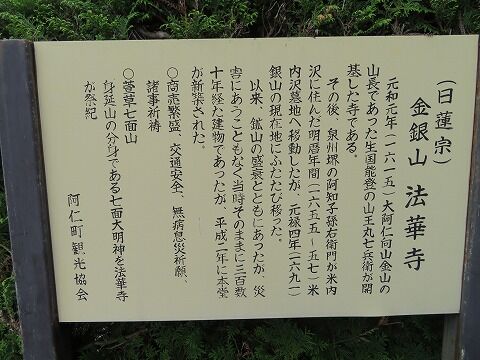 (日蓮宗)
金銀山 法華寺
元和元年(一六一五)大阿仁向山金山の
山長であった生国能登の山王丸七兵衛が開
基した寺である。
その後、泉州堺の阿知子孫右衛門が米内
沢に住んだ明暦年間(一六五五~五七)米
内沢墓地へ移動したが、元禄四年(一六九一)
銀山の現在地にふたたび移った。
以来、鉱山の盛衰とともにあったが、災
害にあうこともなく当時そのままに三百数
十年経た建物であったが、平成二年に本堂
が新築された。
○商売繁盛、交通安全、無病息災祈願、
諸事祈祷
○萱草七面山
身延山の分身である七面大明神を法華寺
が祭祀
阿仁町観光協会